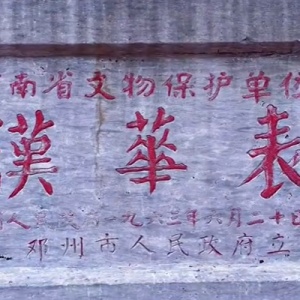 南省文物保护单位
漢華表
人民政府一九六三年六月二十日
邓州市人民政府立